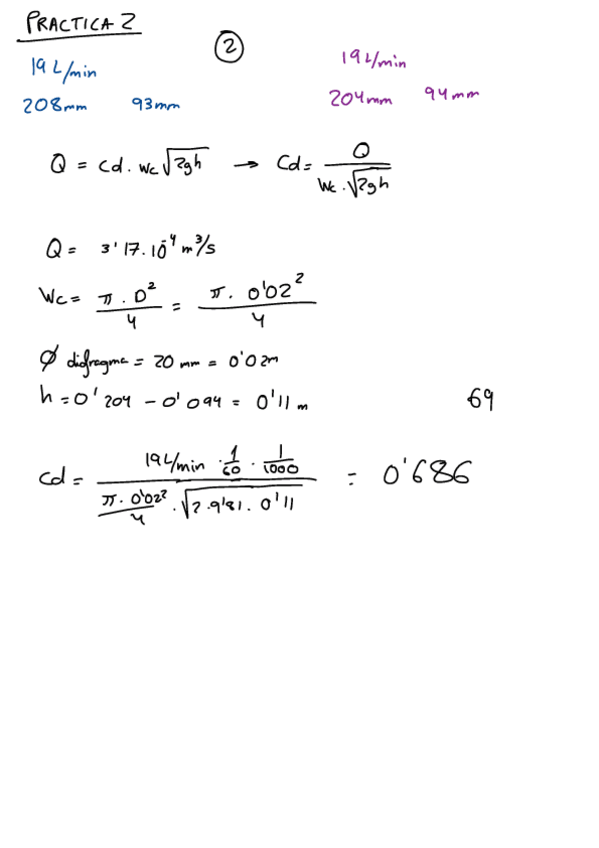 PRACTICA 2
2
19 L/min
208mm 93mm
19 L/min
204mm 94mm
Q = Cd. Wc √2gh → Cd = Q / Wc . √2gh
Q = 3'17.10^-4 m³/s
Wc = π . D² / 4 = π . 0'02² / 4
Ø diafragma = 20 mm = 0'02m
h = 0'204 - 0'094 = 0'11 m
69
Cd = 19L/min . 1/60 . 1/1000 / π. 0'02² / 4 . √2.9'81. 0'11 = 0'686